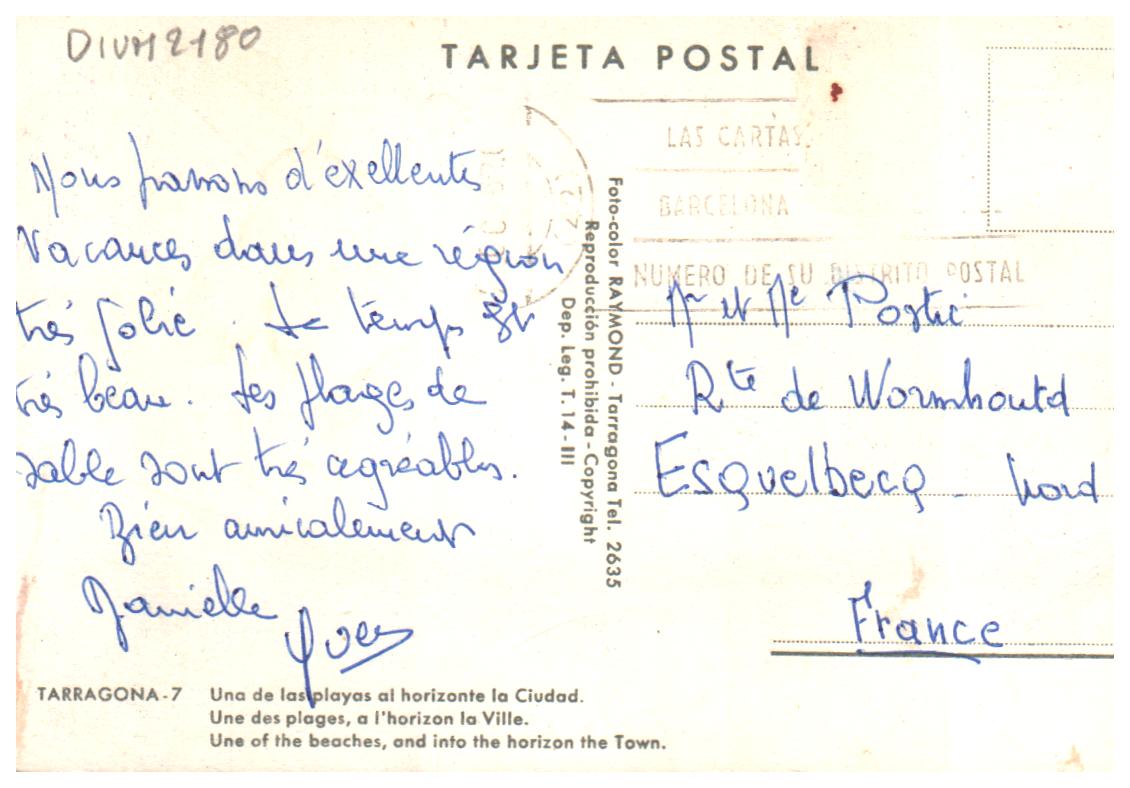 DIVM2180
TARJETA POSTAL
LAS CARTAS
BARCELONA
NUMERO DE SU DISTRITO POSTAL
Nous passons d'exellentes
Vacances dans une région
très jolie. Le temps est
très beau. Les plages de
sable sont très agréables.
Bien amicalement
Danielle
Yves
Foto-color RAYMOND - Tarragona Tel. 2635
Reproducción prohibida - Copyright
Dep. Leg. T. 14 - III
Mr et Me
Rte de Wormhoutd
Esquelbecq - Nord
France
TARRAGONA - 7 Una de las playas al horizonte la Ciudad.
Une des plages, a l'horizon la Ville.
Une of the beaches, and into the horizon the Town.